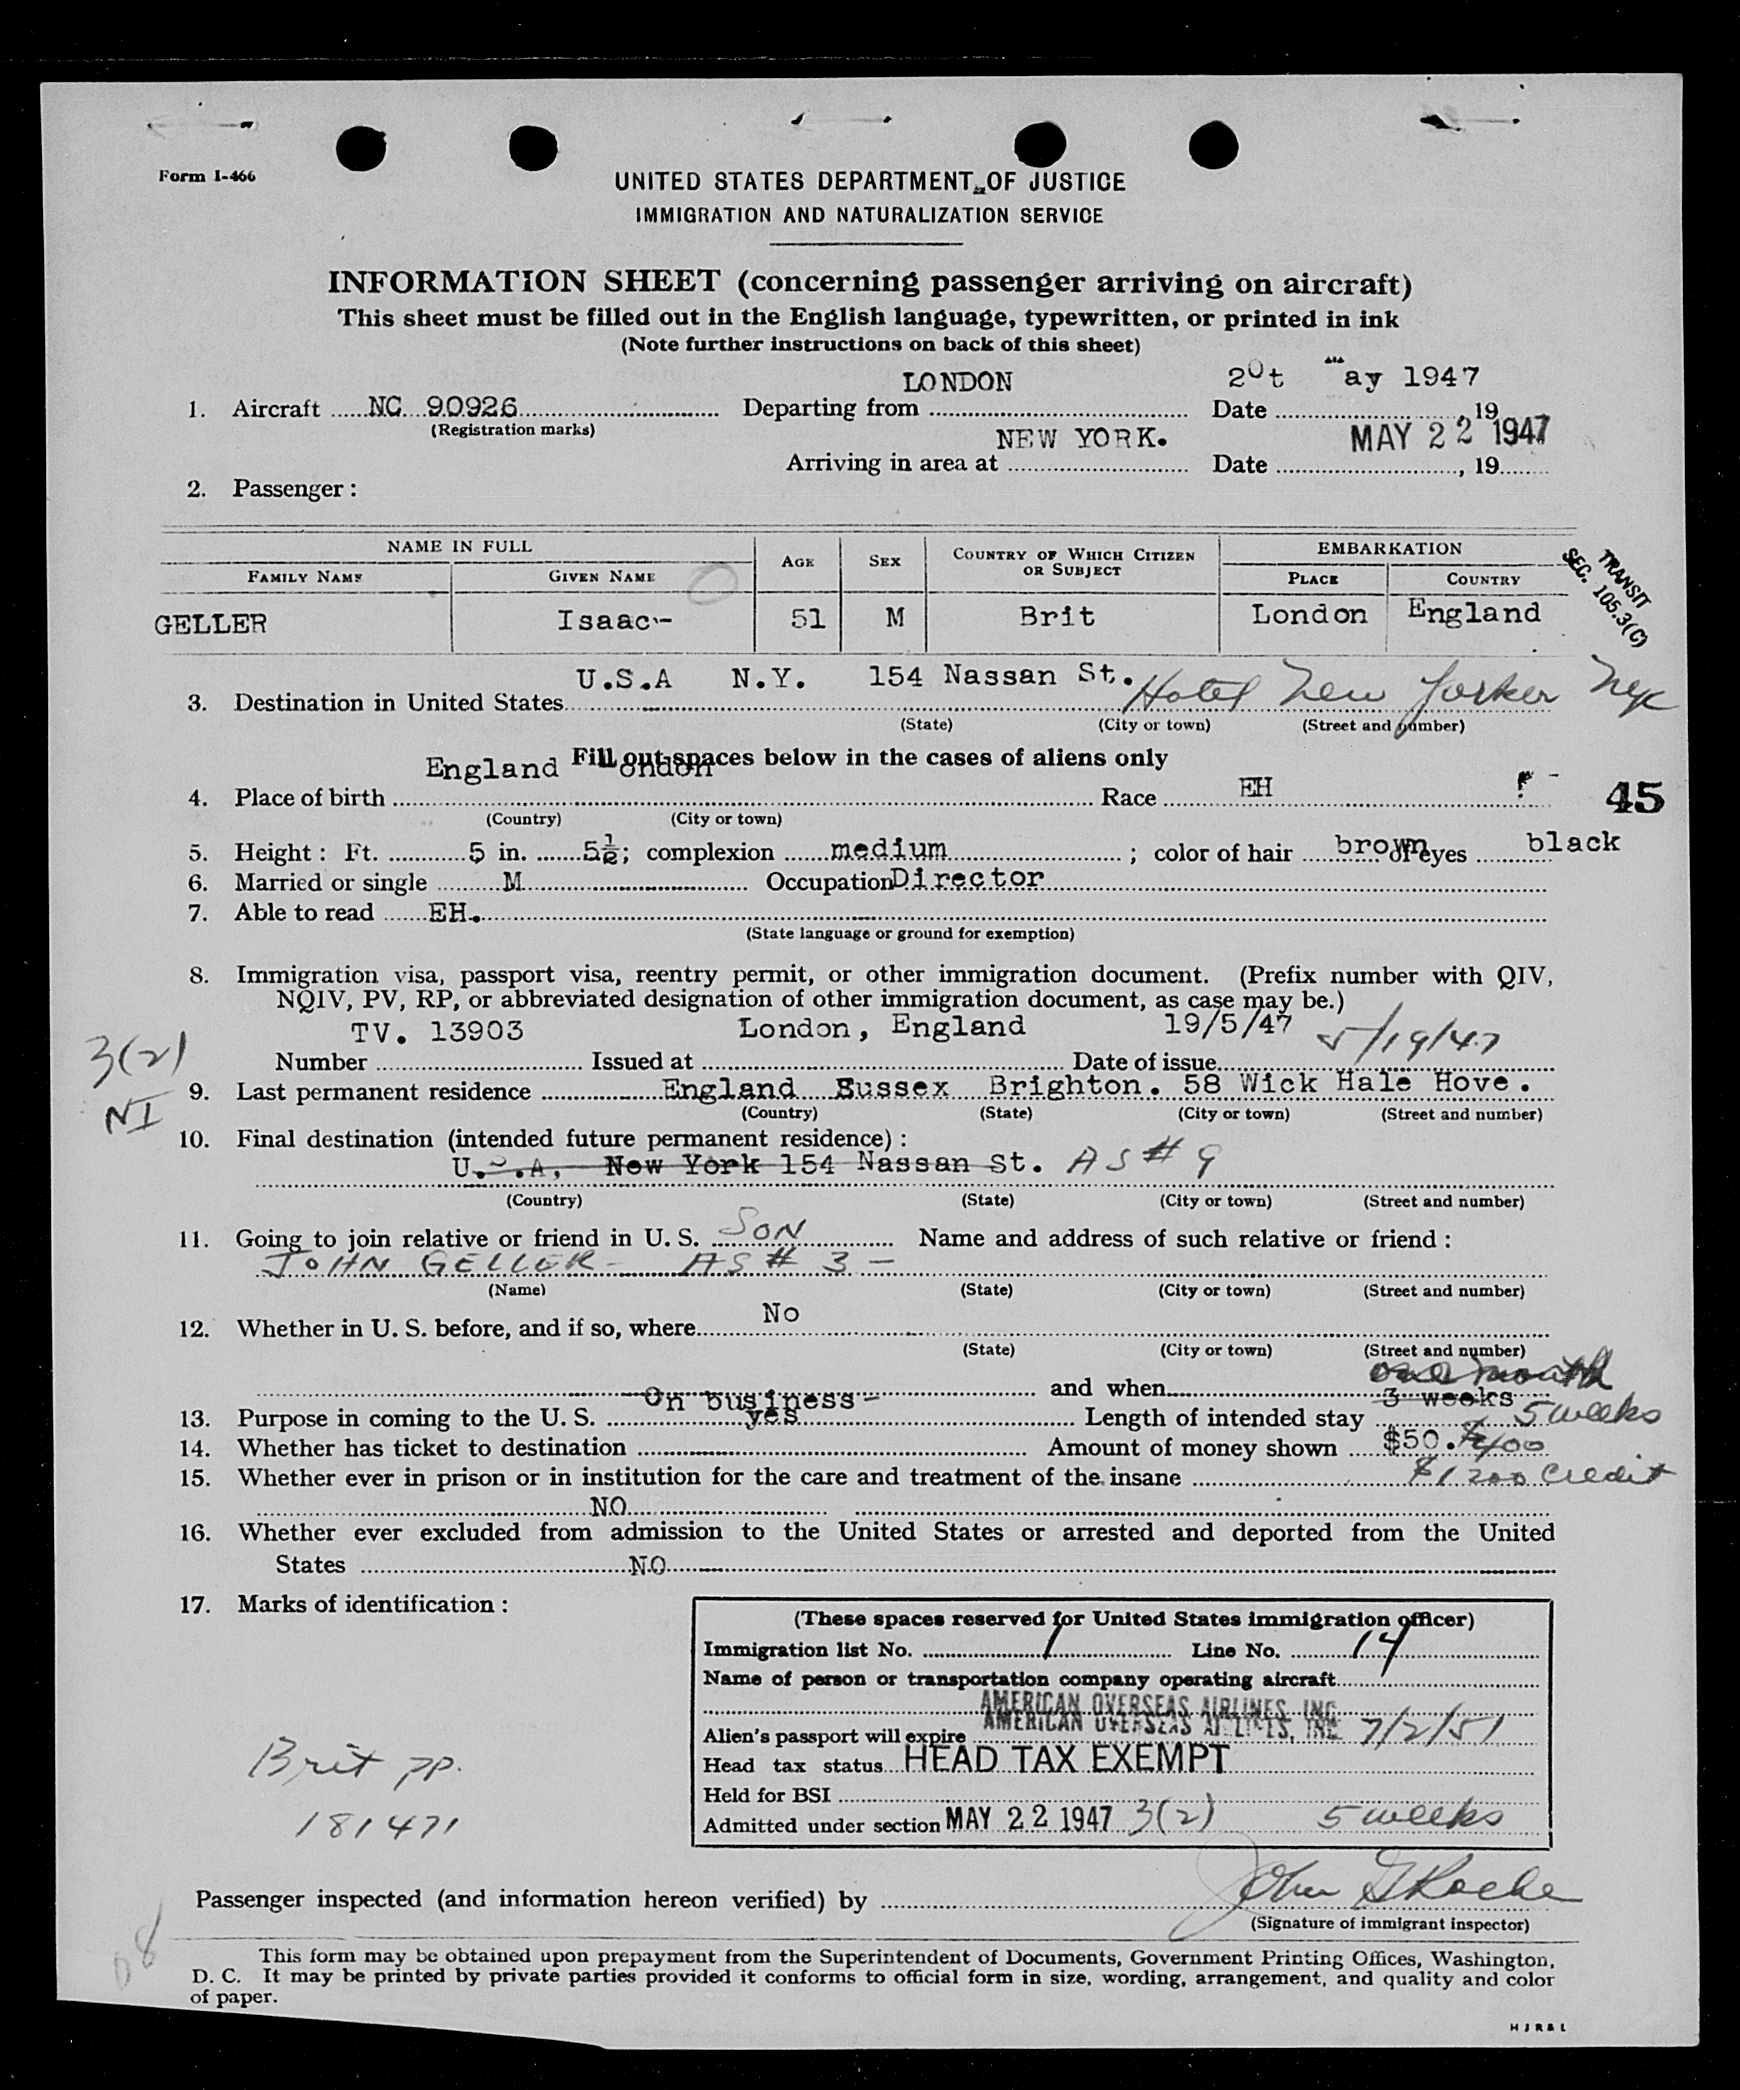 Form I-466
UNITED STATES DEPARTMENT OF JUSTICE
IMMIGRATION AND NATURALIZATION SERVICE
INFORMATION SHEET (concerning passenger arriving on aircraft)
This sheet must be filled out in the English language, typewritten, or printed in ink
(Note further instructions on back of this sheet)
1. Aircraft NC 90926 Departing from LONDON Date ay 1947 , 19
(Registration marks)
Arriving in area at NEW YORK. Date MAY 22 1947 , 19
2. Passenger :
NAME IN FULL AGE SEX COUNTRY OF WHICH CITIZEN OR SUBJECT EMBARKATION
FAMILY NAME GIVEN NAME PLACE COUNTRY
GELLER Isaac- 51 M Brit London England
TRANSIT
SEC. 105.3(C)
U.S.A N.Y. 154 Nassan St. Hotel New Yorker NYC
3. Destination in United States
(State) (City or town) (Street and number)
Fill out spaces below in the cases of aliens only
4. Place of birth England London Race EH
(Country) (City or town)
45
5. Height : Ft. 5 in. 5½; complexion medium ; color of hair brown of eyes black
6. Married or single M Occupation Director
7. Able to read EH.
(State language or ground for exemption)
8. Immigration visa, passport visa, reentry permit, or other immigration document. (Prefix number with QIV,
NQIV, PV, RP, or abbreviated designation of other immigration document, as case may be.)
TV. 13903 London, England 19/5/47 5/19/47
Number Issued at Date of issue
3(2)
NI
9. Last permanent residence England Sussex Brighton. 58 Wick Hale Hove.
(Country) (State) (City or town) (Street and number)
10. Final destination (intended future permanent residence) :
U.S.A, New York 154 Nassan St. AS # 9
(Country) (State) (City or town) (Street and number)
11. Going to join relative or friend in U. S. SON Name and address of such relative or friend :
JOHN GELLER - AS # 3 -
(Name) (State) (City or town) (Street and number)
12. Whether in U. S. before, and if so, where No
(State) (City or town) (Street and number)
and when
one month
13. Purpose in coming to the U. S. On business- Length of intended stay 3 weeks 5 weeks
14. Whether has ticket to destination yes Amount of money shown $50.
15. Whether ever in prison or in institution for the care and treatment of the insane $1200 credit
NO
16. Whether ever excluded from admission to the United States or arrested and deported from the United
States NO
17. Marks of identification :
(These spaces reserved for United States immigration officer)
Immigration list No. 1 Line No. 14
Name of person or transportation company operating aircraft
AMERICAN OVERSEAS AIRLINES, INC.
AMERICAN OVERSEAS AIRLINES, INC.
Alien's passport will expire 7/2/51
Head tax status HEAD TAX EXEMPT
Held for BSI
Admitted under section MAY 22 1947 3(2) 5 weeks
Brit pp.
181471
Passenger inspected (and information hereon verified) by John G Roche
(Signature of immigrant inspector)
This form may be obtained upon prepayment from the Superintendent of Documents, Government Printing Offices, Washington,
D. C. It may be printed by private parties provided it conforms to official form in size, wording, arrangement, and quality and color
of paper.
HJR&L